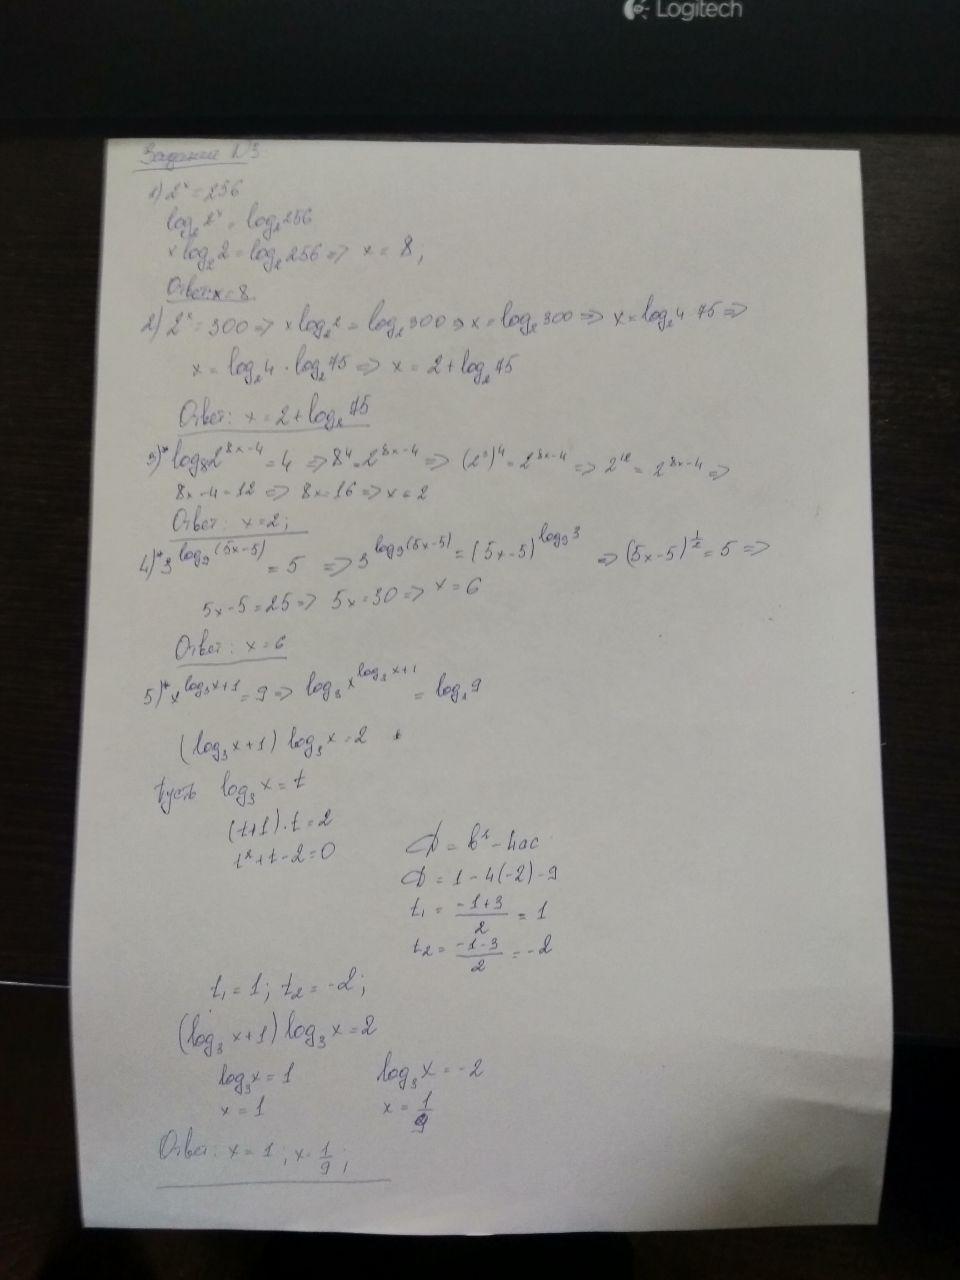 Logitech
Задание №3
1) 2^x = 256
log₂2^x = log₂256
x log₂2 = log₂256 => x = 8;
Ответ: x = 8
2) 2^x = 300 => x log₂2 = log₂300 => x = log₂300 => x = log₂4·75 =>
x = log₂4 · log₂75 => x = 2 + log₂75
Ответ: x = 2 + log₂75
3)* log₈2^(8x-4) = 4 => 8^4 = 2^(8x-4) => (2^3)^4 = 2^(8x-4) => 2^12 = 2^(8x-4) =>
8x - 4 = 12 => 8x = 16 => x = 2
Ответ: x = 2;
4)* 3^(log₉(5x-5)) = 5 => 3^(log₉(5x-5)) = (5x-5)^(log₉3) => (5x-5)^(1/2) = 5 =>
5x - 5 = 25 => 5x = 30 => x = 6
Ответ: x = 6
5)* x^(log₃x+1) = 9 => log₃x^(log₃x+1) = log₃9
(log₃x+1) log₃x = 2
Пусть log₃x = t
(t+1)·t = 2
t² + t - 2 = 0
D = b² - 4ac
D = 1 - 4(-2) = 9
t₁ = (-1+3)/2 = 1
t₂ = (-1-3)/2 = -2
t₁ = 1; t₂ = -2;
(log₃x+1) log₃x = 2
log₃x = 1 log₃x = -2
x = 1 x = 1/9
Ответ: x = 1; x = 1/9;